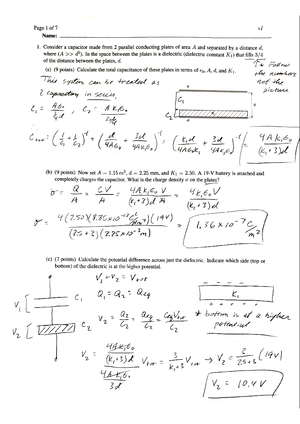 Page 1 of 7
v1
Name:
1. Consider a capacitor made from 2 parallel conducting plates of area A and separated by a distance d,
where (A >> d²). In the space between the plates is a dielectric (dielectric constant K₁) that fills 3/4
of the distance between the plates.
↑ Follow
the numbers
not the
picture
(a) (9 points) Calculate the total capacitance of these plates in terms of ε₀, A, d, and K₁.
This system can be treated as
2 capacitors in series.
C₁
C₂
C₁ = Aε₀ / ¼d , C₂ = A K₁ε₀ / ¾d
Cₜₒₜ = (1/C₁ + 1/C₂)⁻¹ = (d/4Aε₀ + 3d/4AK₁ε₀)⁻¹ = (K₁d/4Aε₀K₁ + 3d/4AK₁ε₀)⁻¹ = 4AK₁ε₀ / (K₁+3)d
(b) (9 points) Now set A = 1.15 m², d = 2.25 mm, and K₁ = 2.50. A 19-V battery is attached and
completely charges the capacitor. What is the charge density σ on the plates?
σ = Q/A = CV/A = 4AK₁ε₀ V / (K₁+3)d A = 4K₁ε₀V / (K₁+3)d
σ = 4(2.50)(8.85×10⁻¹² C²/Nm²)(19V) / (2.5+3)(2.25×10⁻³m) = 1.36×10⁻⁷ C/m²
(c) (7 points) Calculate the potential difference across just the dielectric. Indicate which side (top or
bottom) of the dielectric is at the higher potential.
V₁ + V₂ = Vₜₒₜ
Q₁ = Q₂ = Qeq
K₁
V₁
C₁
V₂
C₂
V₂ = Q₂/C₂ = Qeq/C₂ = CeqVₜₒₜ/C₂
* bottom is at a higher
potential
V₂ = (4AK₁ε₀/(K₁+3)d) / (4AK₁ε₀/3d) Vₜₒₜ = 3/(K₁+3) Vₜₒₜ → V₂ = 3/(2.5+3) (19V)
V₂ = 10.4V